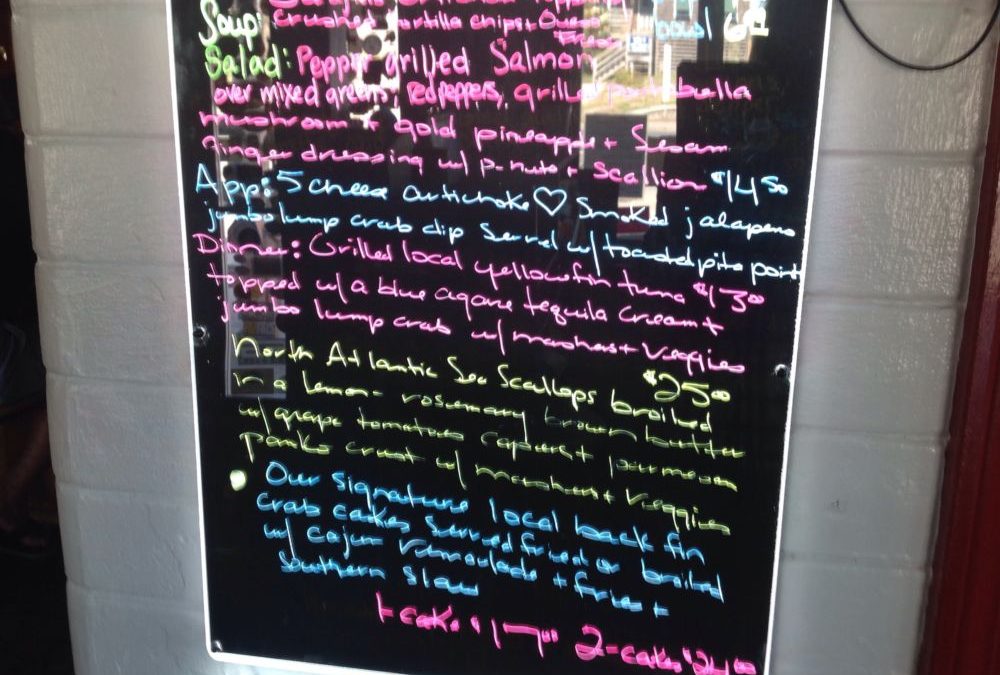 Soup: crushed tortilla chips + Queso
Fresco bowl 6
Salad: Pepper grilled Salmon
over mixed greens, red peppers, grilled portabella
mushroom + gold pineapple + Sesam
ginger dressing w/ p-nuts + Scallion $14 50
App: 5 cheese artichoke ♡ Smoked jalapeno
jumbo lump crab dip Served w/ toasted pita points
Dinner: Grilled local yellowfin tuna $13 00
topped w/ a blue agave tequila cream +
jumbo lump crab w/ mashers + Veggies
$25 00
North Atlantic Sea Scallops broiled
in a lemon-rosemary brown butter
w/ grape tomatoes capers + parmesan
panko crust w/ mashers + Veggies
• Our signature local back fin
crab cakes Served fried or broiled
w/ cajun remoulade + fries +
Southern Slaw
1-cake $17 00 2-cakes $24 00